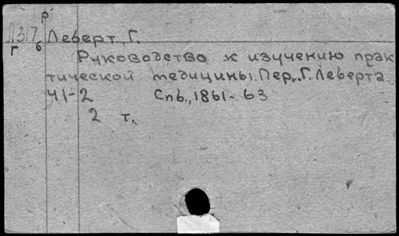 р
Л317 Леберт, Г.
Г 6
Руководство к изучению прак
тической медицины. Пер. Г. Леберта.
Ч1-2 Спб., 1861-63
2 т.